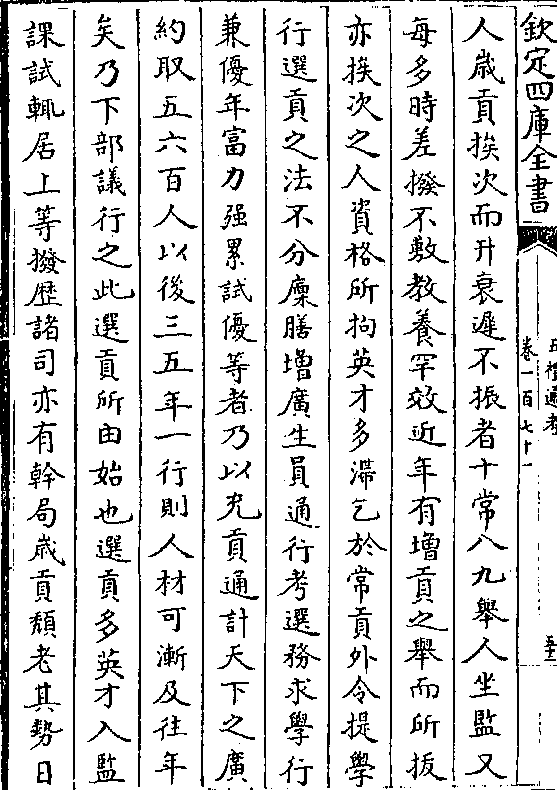 欽定四庫全書
五禮通考
卷一百七十一
人歲貢挨次而升衰遲不振者十常八九舉人坐監又
每多時差撥不敷教養罕效近年有增貢之舉而所拔
亦挨次之人資格所拘英才多滯乞於常貢外令提學
行選貢之法不分廩膳增廣生員通行考選務求學行
兼優年富力强累試優等者乃以充貢通計天下之廣
約取五六百人以後三五年一行則人材可漸及往年
矣乃下部議行之此選貢所由始也選貢多英才入監
課試輒居上等撥歷諸司亦有幹局歲貢頹老其勢日